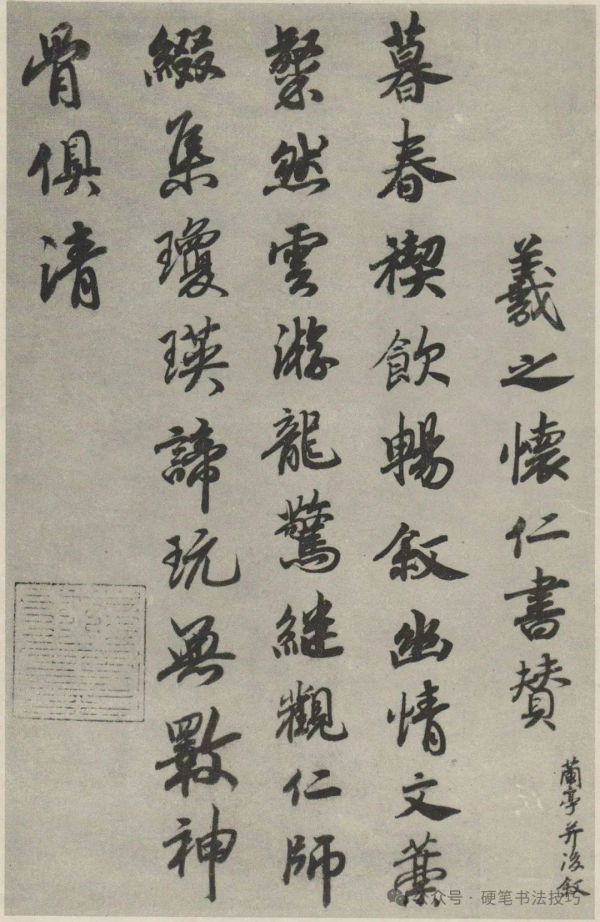 羲之懷仁書贊
蘭亭并後叙
暮春禊飲暢叙幽情文藻
粲然雲游龍驚繼觀仁師
綴集瓊瑛諦玩無斁神
骨俱清
公众号 · 硬笔书法技巧